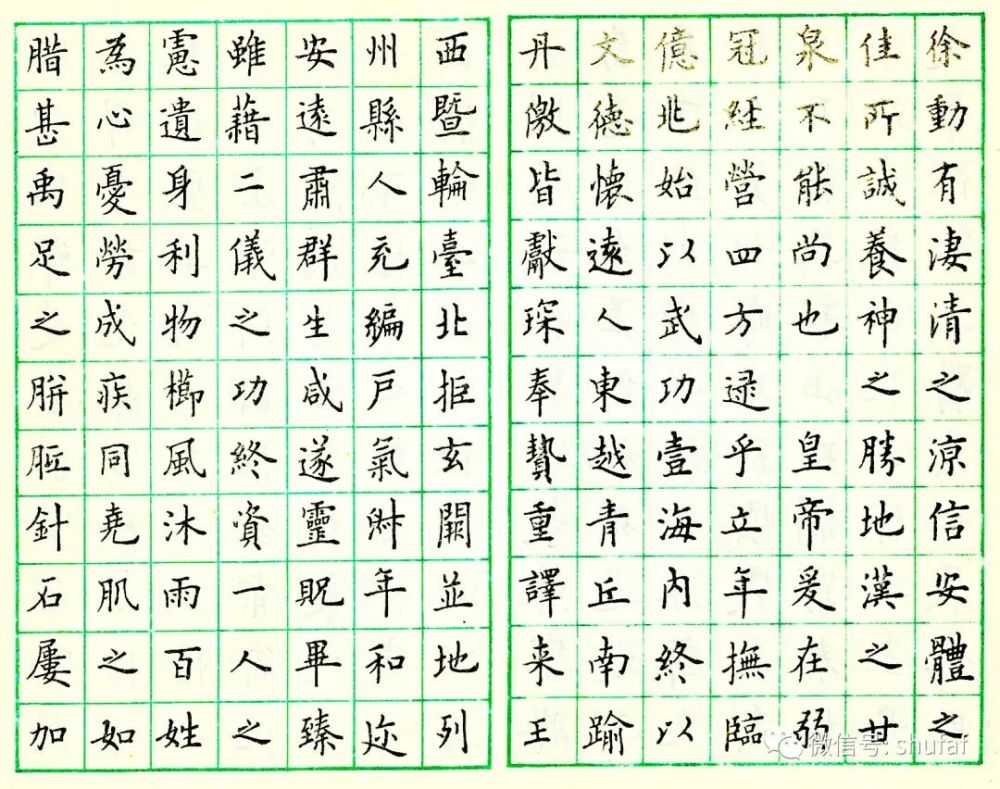 徐動有淒清之涼信安體之
佳所誠養神之勝地漢之甘
泉不能尚也 皇帝爰在弱
冠經營四方逯乎立年撫臨
億兆始以武功壹海內終以
文德懷遠人東越青丘南踰
丹徼皆獻琛奉贄重譯来王
西暨輪臺北拒玄闕並地列
州縣人充編戶氣淑年和迩
安遠肅群生咸遂靈貺畢臻
雖藉二儀之功終資一人之
慮遺身利物櫛風沐雨百姓
為心憂勞成疾同堯肌之如
腊甚禹足之胼胝針石屢加
微信号: shufaf